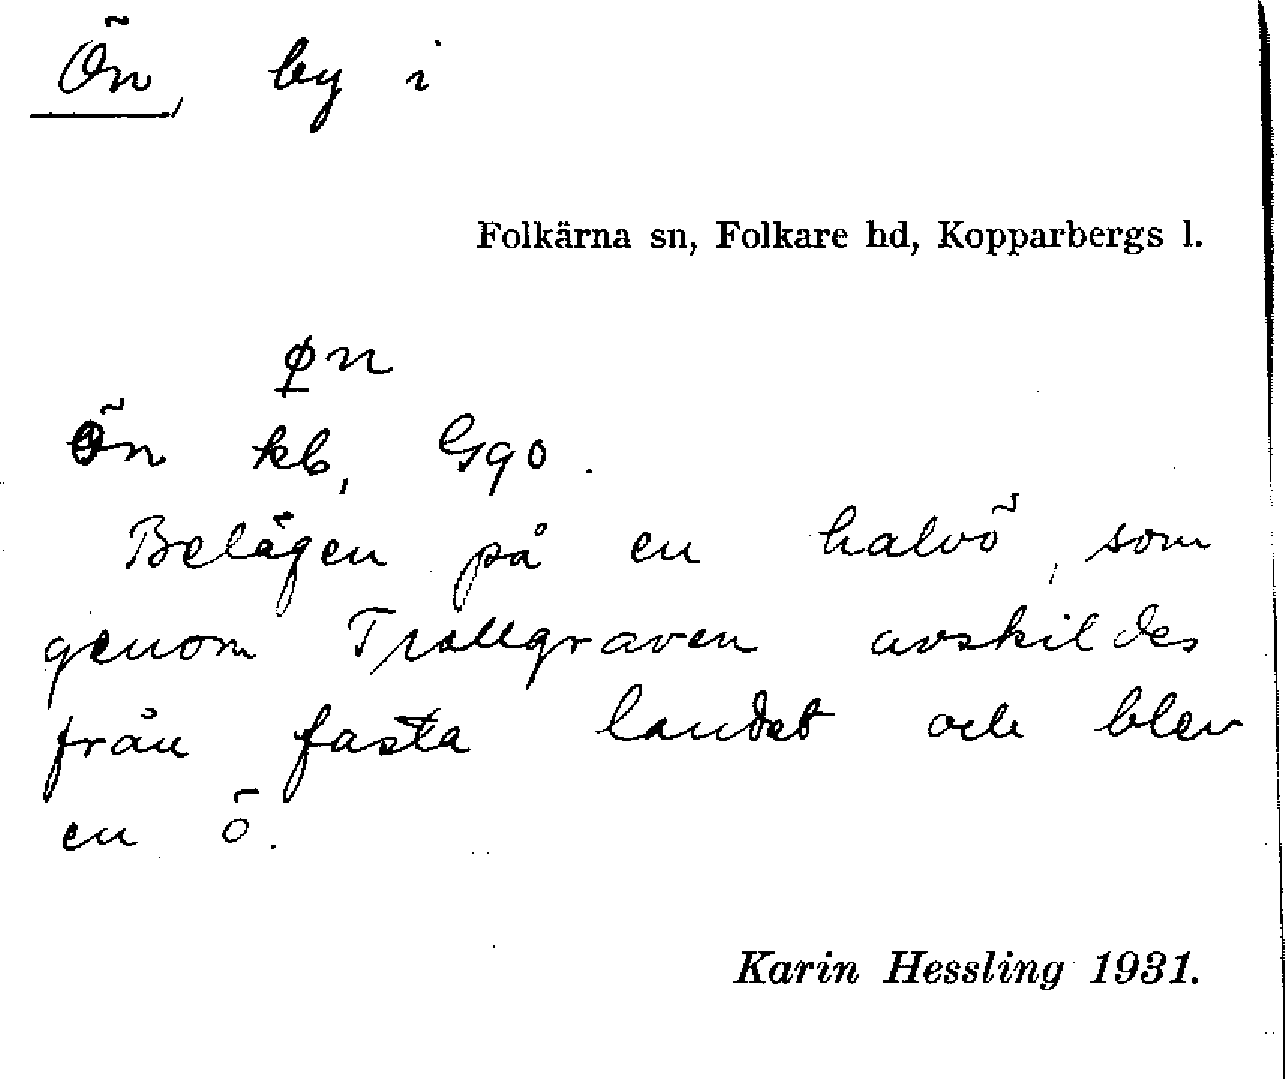 Ön, by i
Folkärna sn, Folkare hd, Kopparbergs l.
ø̱n
Ön kb, Gqo.
Belägen på en halvö, som
genom Trollgraven avskildes
från fasta landet och blev
en ö.
Karin Hessling 1931.